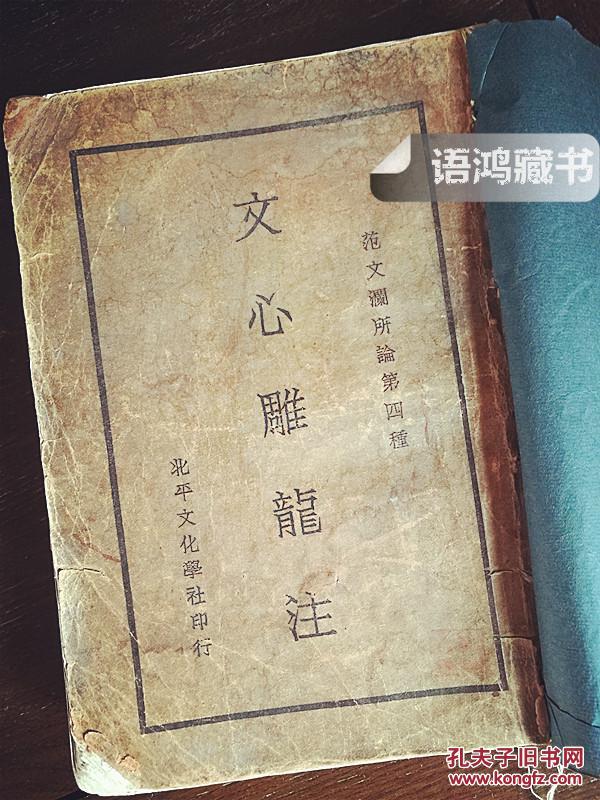 范文瀾所論第四種
文心雕龍注
北平文化學社印行
语鸿藏书
孔夫子旧书网
www.kongfz.com